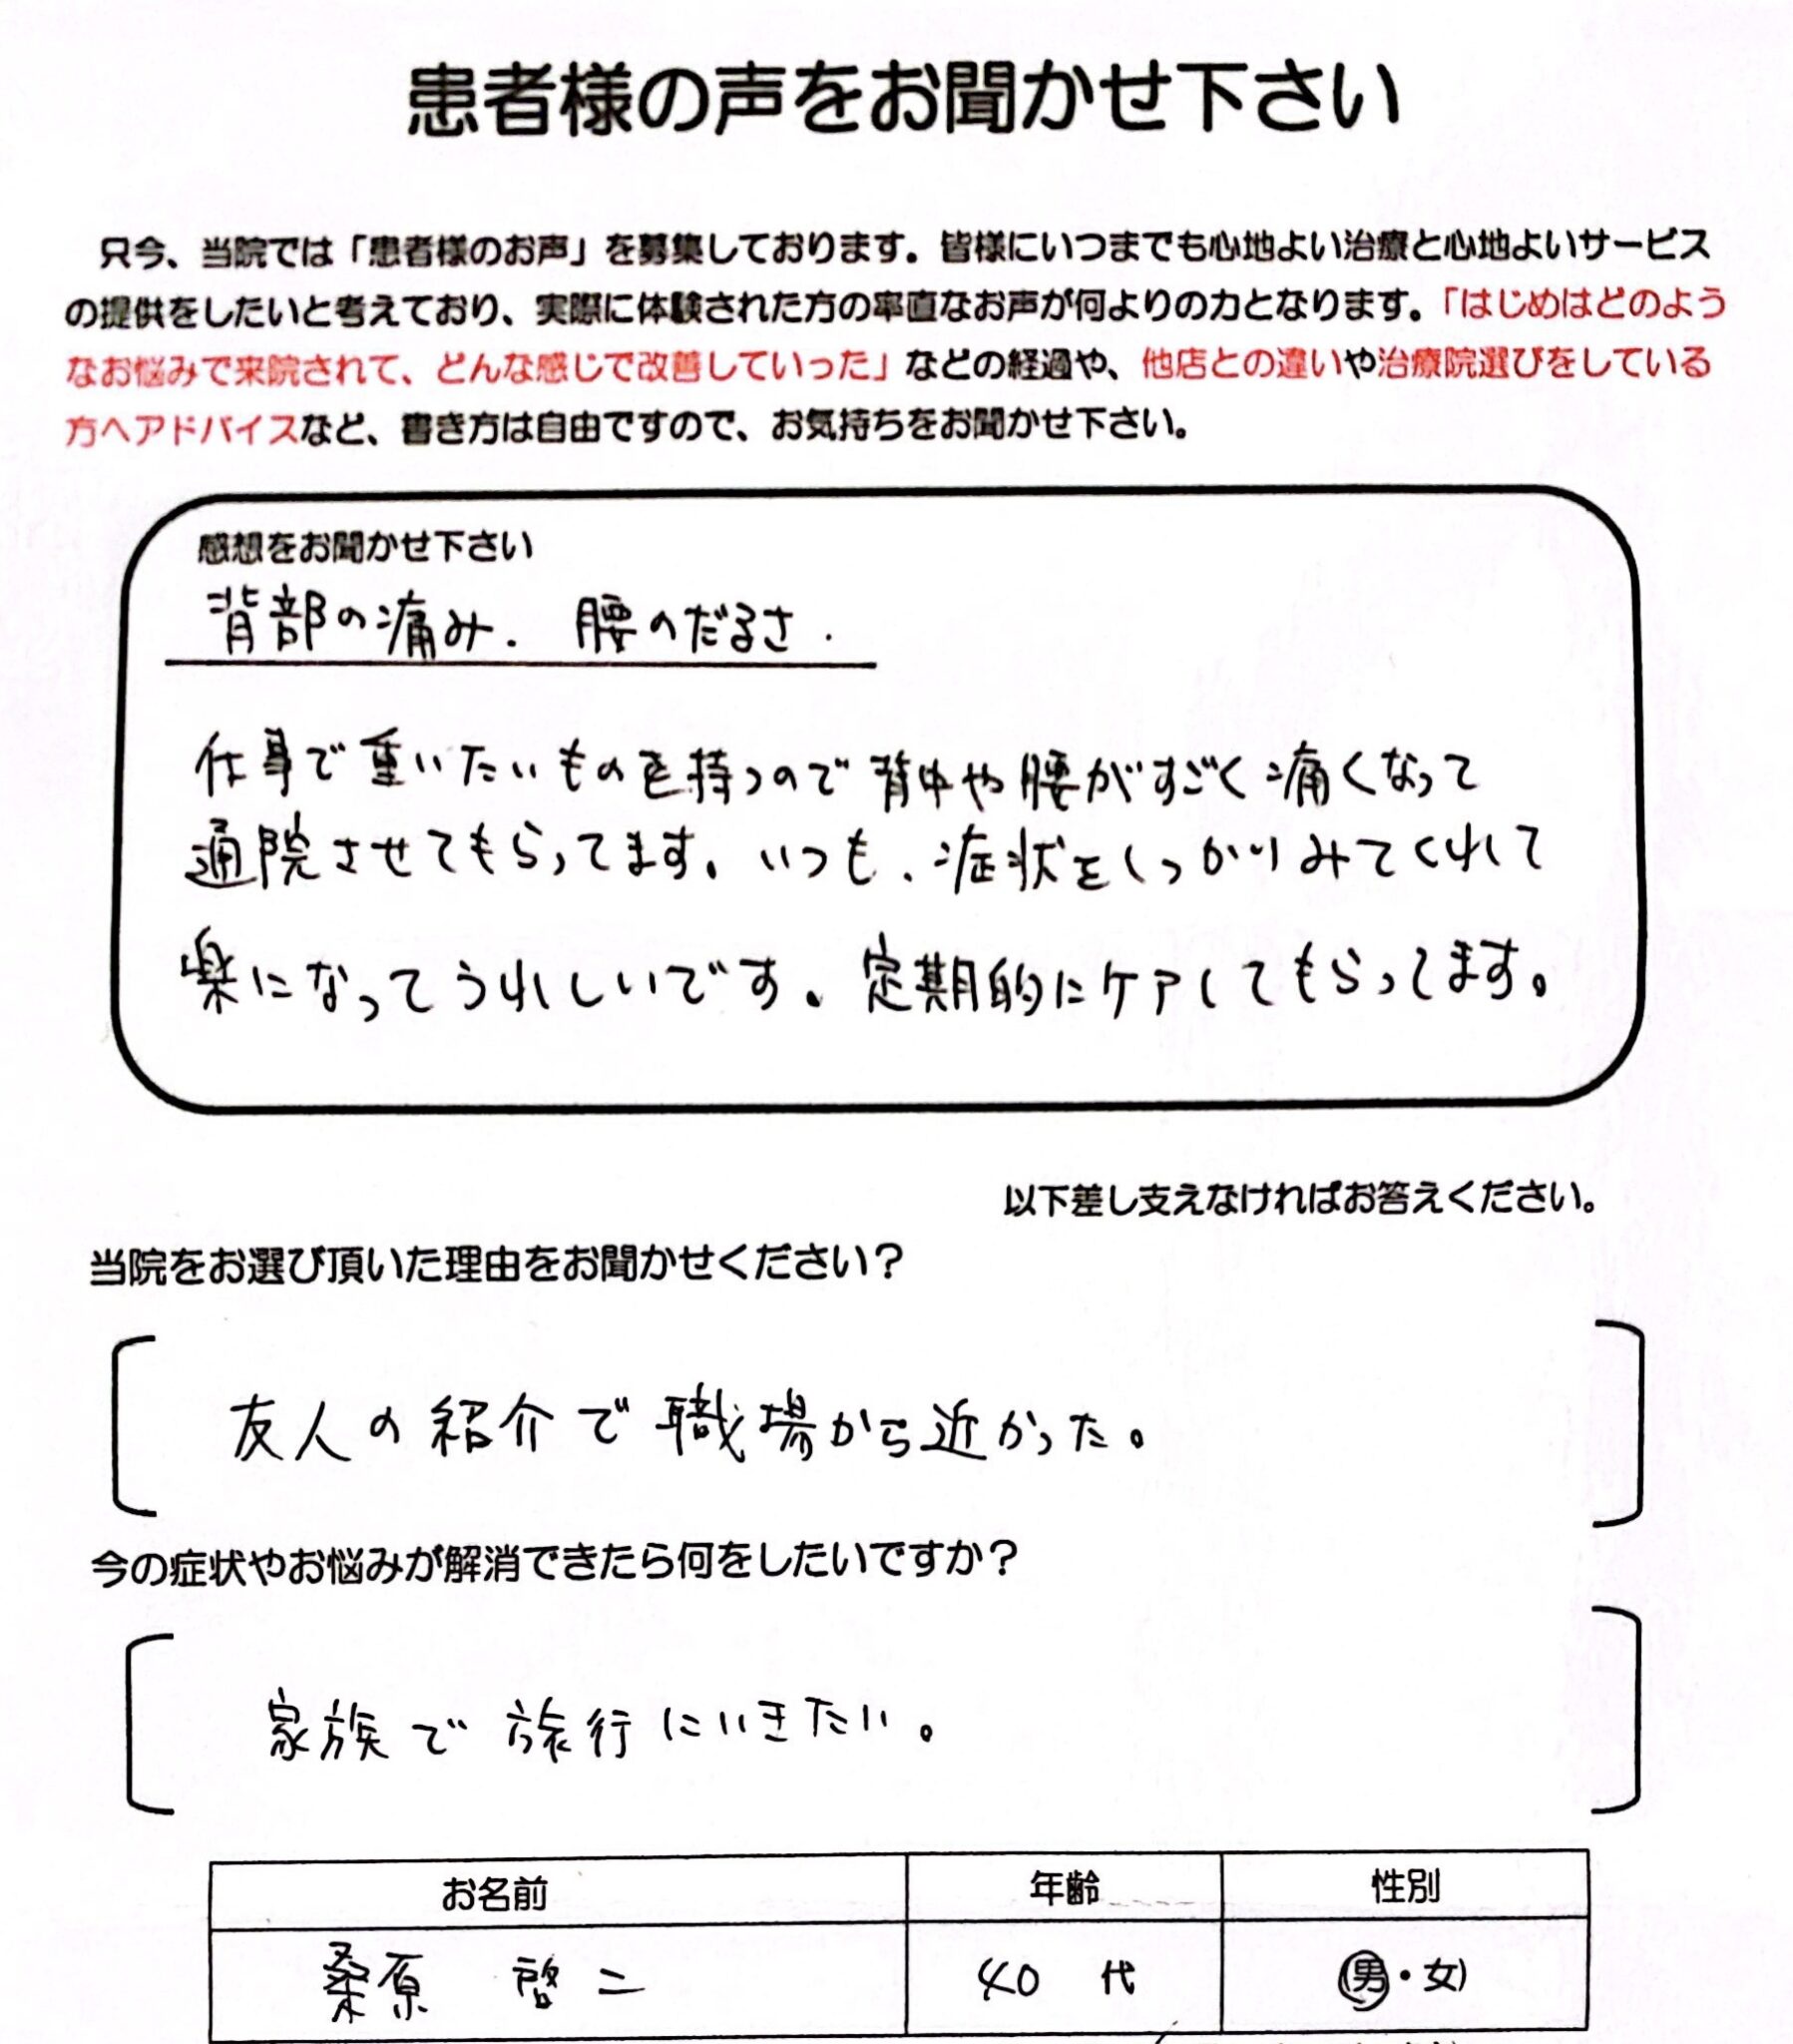 患者様の声をお聞かせ下さい
只今、当院では「患者様のお声」を募集しております。皆様にいつまでも心地よい治療と心地よいサービス
の提供をしたいと考えており、実際に体験された方の率直なお声が何よりの力となります。「はじめはどのよう
なお悩みで来院されて、どんな感じで改善していった」などの経過や、他店との違いや治療院選びをしている
方へアドバイスなど、書き方は自由ですので、お気持ちをお聞かせ下さい。
感想をお聞かせ下さい
背部の痛み. 腰のだるさ.
仕事で重いたいものを持つので背中や腰がすごく痛くなって
通院させてもらってます。いつも、症状をしっかりみてくれて
楽になってうれしいです。定期的にケアしてもらってます。
以下差し支えなければお答えください。
当院をお選び頂いた理由をお聞かせください？
友人の紹介で職場から近かった。
今の症状やお悩みが解消できたら何をしたいですか？
家族で旅行にいきたい。
お名前 年齢 性別
桑原 啓二 40 代 (男・女)